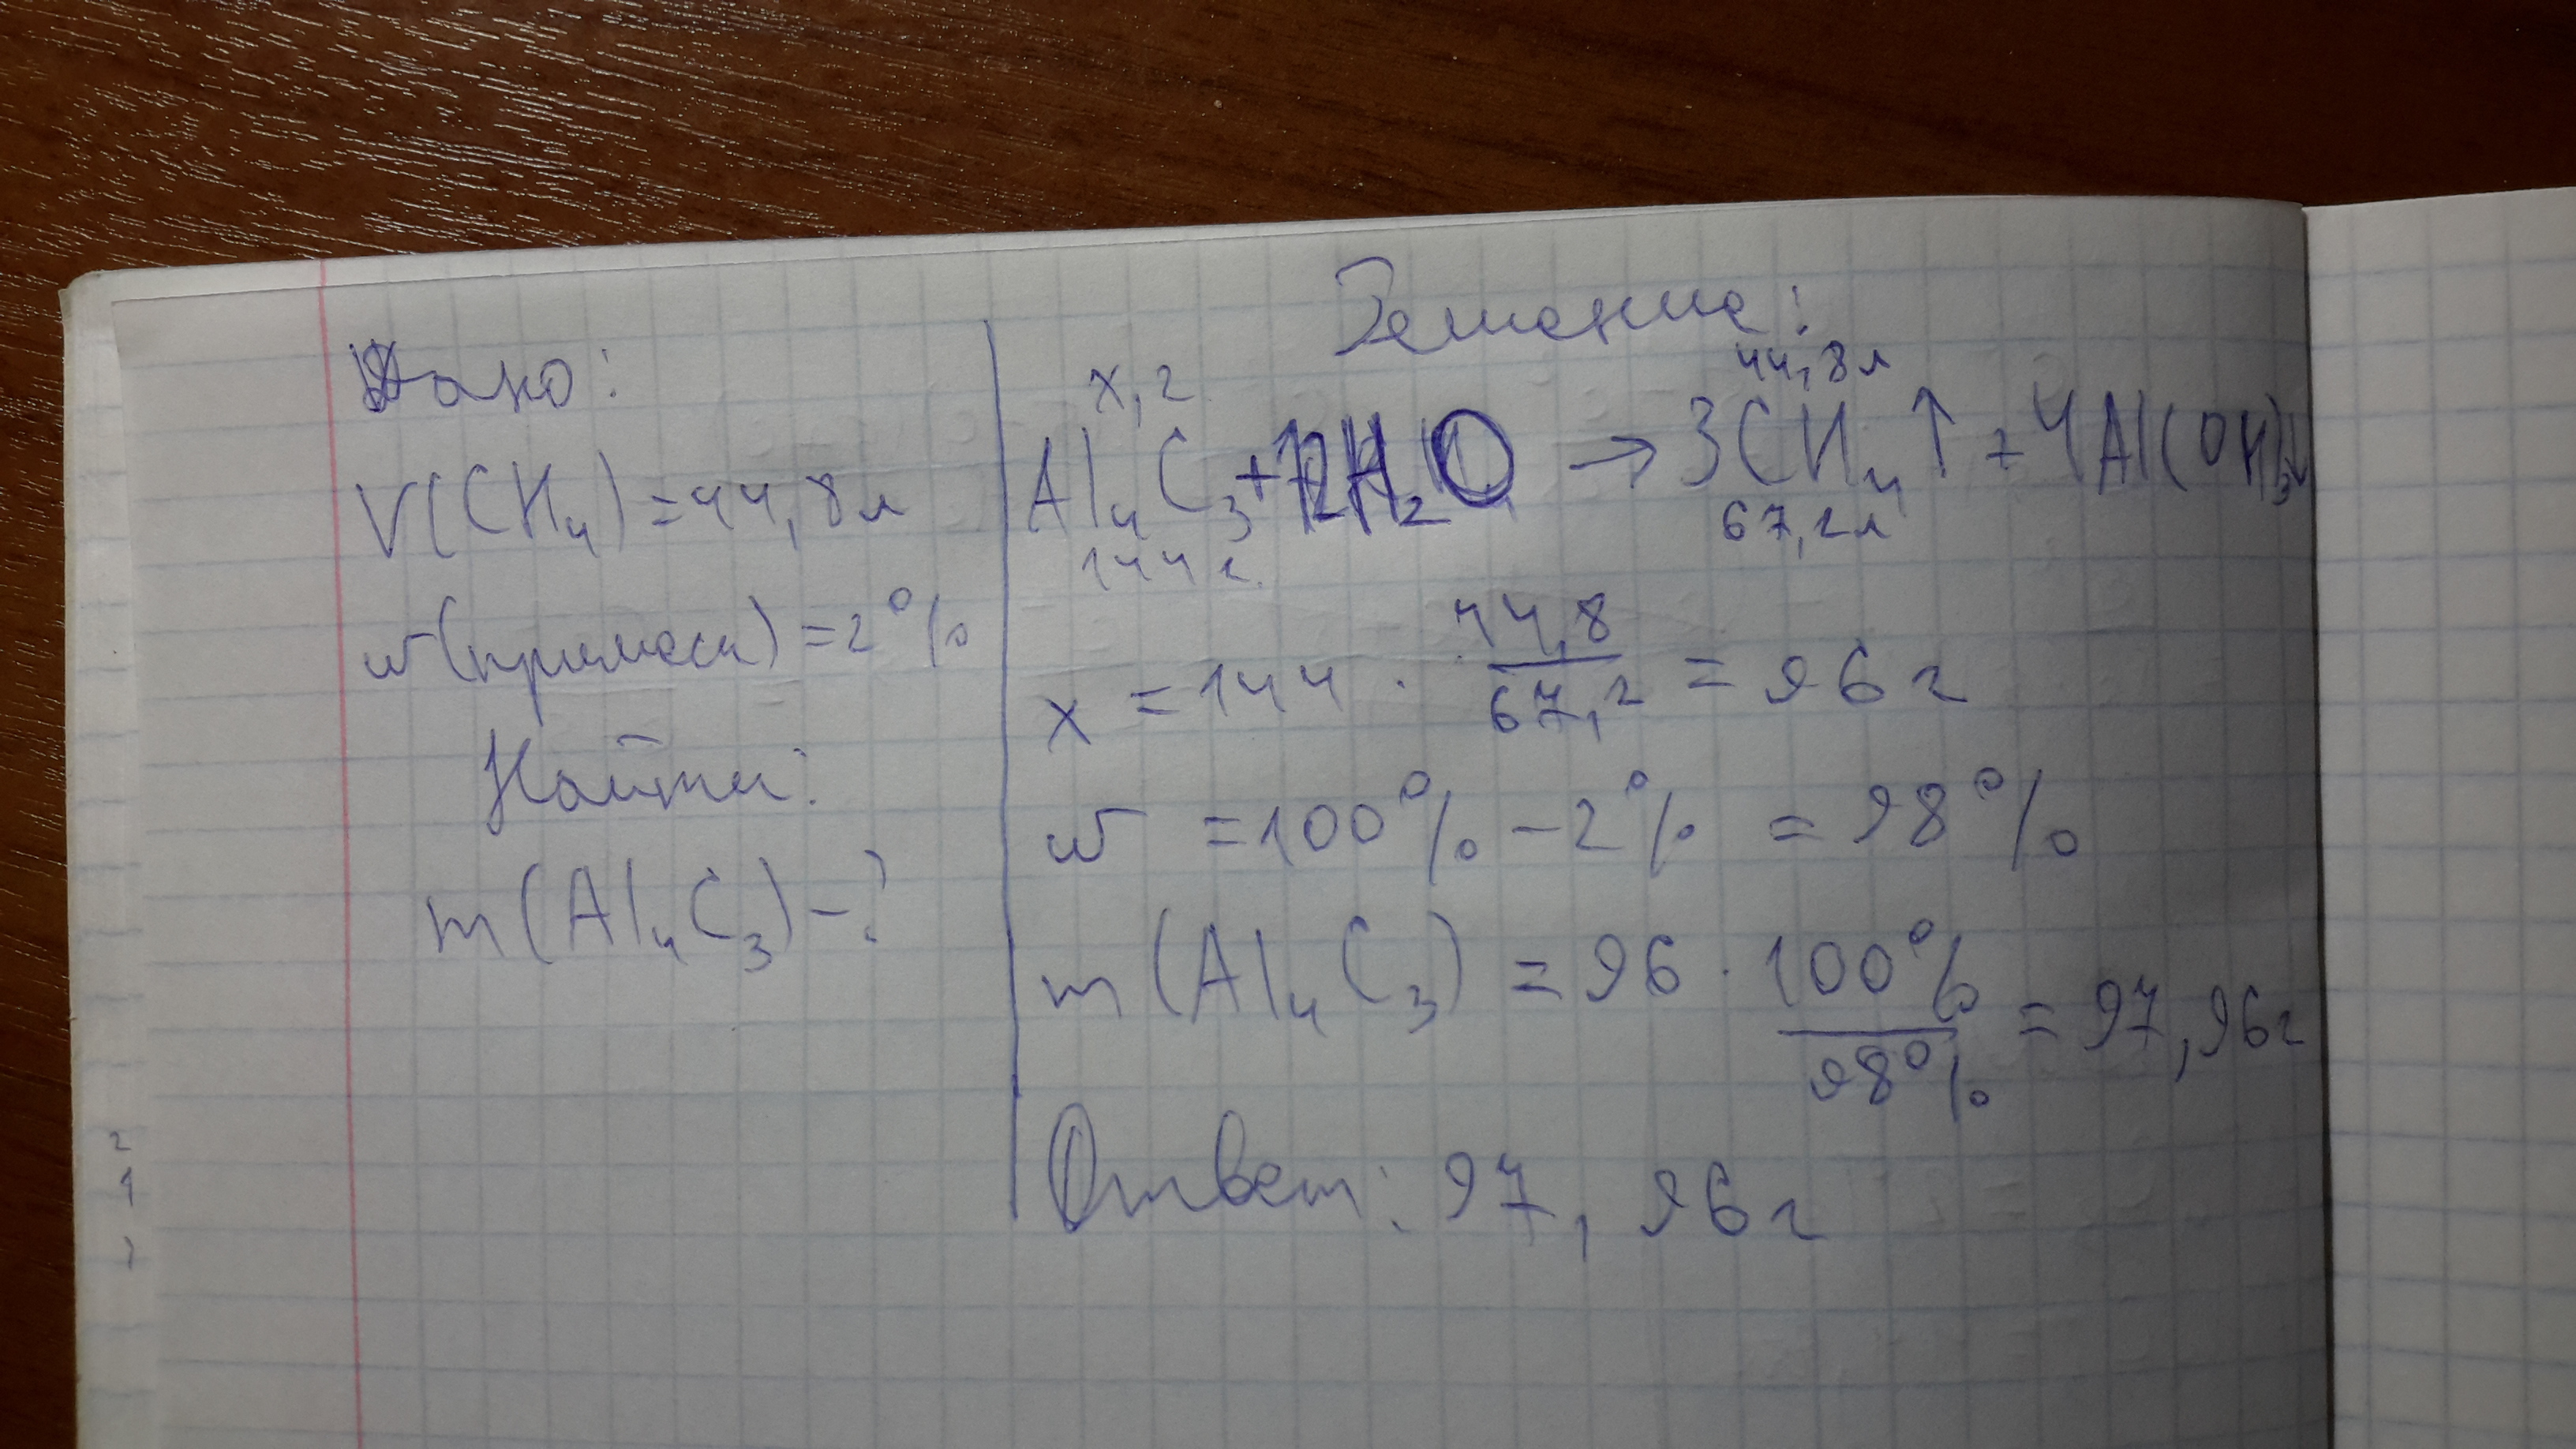 Дано:
V(CH₄) = 44,8 л
w(примеси) = 2%
Найти:
m(Al₄C₃) - ?
Решение:
x, г 44,8 л
Al₄C₃ + 12H₂O → 3CH₄↑ + 4Al(OH)₃↓
144 г 67,2 л
x = 144 · 44,8 / 67,2 = 96 г
w = 100% - 2% = 98%
m(Al₄C₃) = 96 · 100% / 98% = 97,96 г
Ответ: 97,96 г
2
1